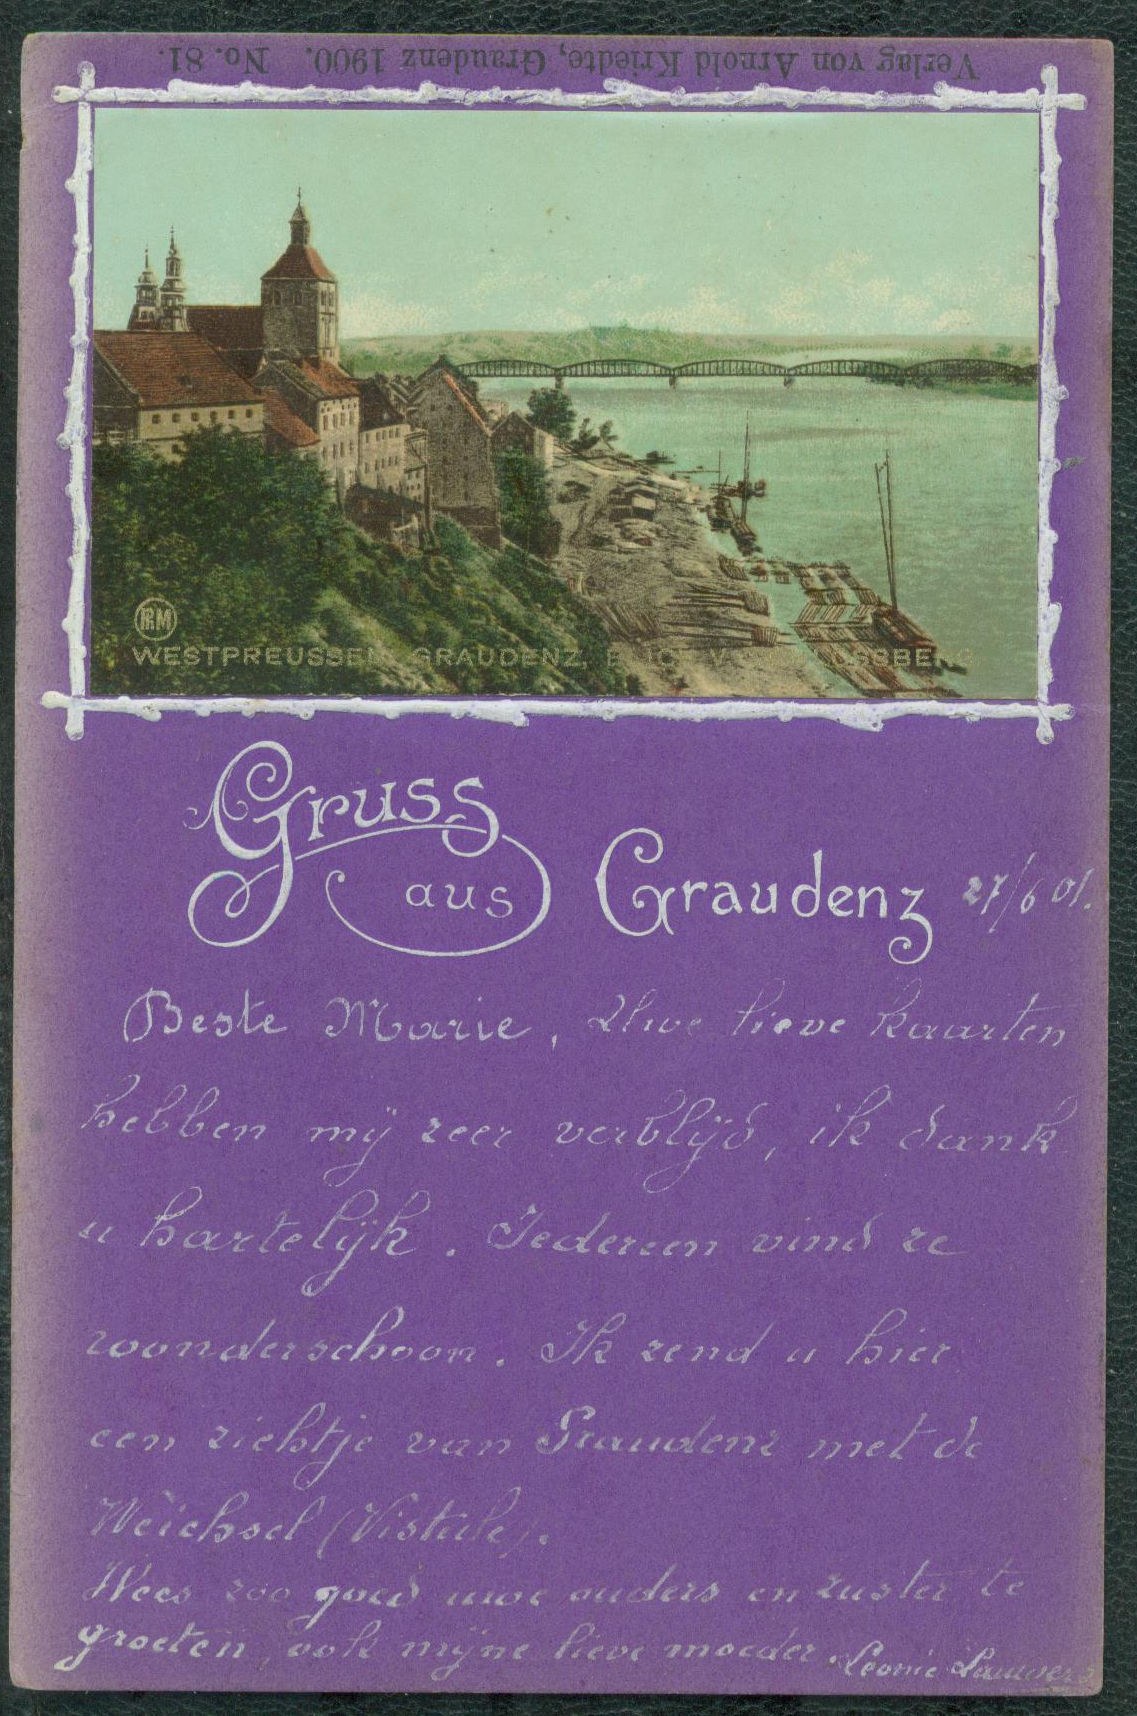 Verlag von Arnold Kriedte, Graudenz 1900. No. 81.
WESTPREUSSEN GRAUDENZ,
Gruss
aus Graudenz 27/6 01.
Beste Marie, Uwe lieve kaarten
hebben mij zeer verblijd, ik dank
u hartelijk. Iedereen vind ze
wonderschoon. Ik zend u hier
een zichtje van Graudenz met de
Weichsel (Vistule).
Wees zoo goed uwe ouders en zuster te
groeten, ook mijne lieve moeder. Leonie Lauwers